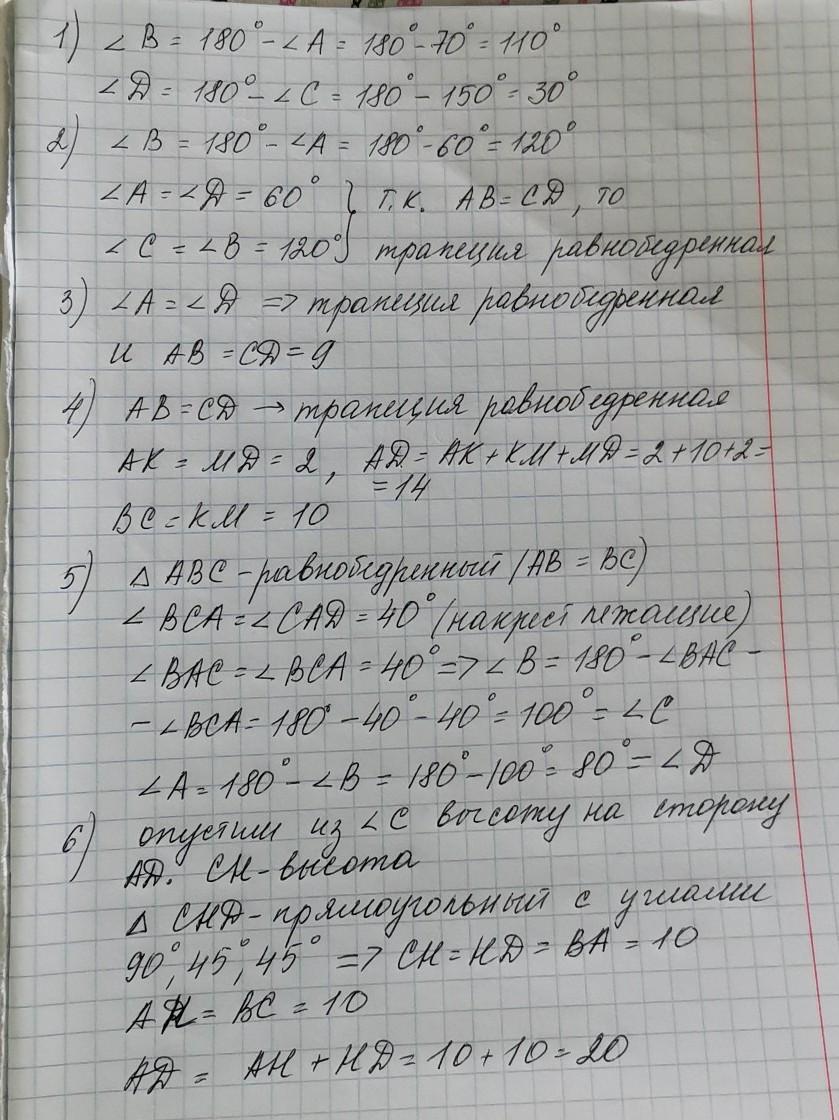 1) ∠B = 180° - ∠A = 180° - 70° = 110°
∠D = 180° - ∠C = 180° - 150° = 30°
2) ∠B = 180° - ∠A = 180° - 60° = 120°
∠A = ∠D = 60° } т.к. AB = CD, то
∠C = ∠B = 120° } трапеция равнобедренная
3) ∠A = ∠D => трапеция равнобедренная
и AB = CD = 9
4) AB = CD → трапеция равнобедренная
AK = MD = 2, AD = AK + KM + MD = 2 + 10 + 2 =
= 14
BC = KM = 10
5) △ ABC - равнобедренный (AB = BC)
∠BCA = ∠CAD = 40° (накрест лежащие)
∠BAC = ∠BCA = 40° => ∠B = 180° - ∠BAC -
- ∠BCA = 180° - 40° - 40° = 100° = ∠C
∠A = 180° - ∠B = 180° - 100° = 80° = ∠D
6) опустим из ∠C высоту на сторону
AD. CH - высота
△ CHD - прямоугольный с углами
90°, 45°, 45° => CH = HD = BA = 10
AH = BC = 10
AD = AH + HD = 10 + 10 = 20